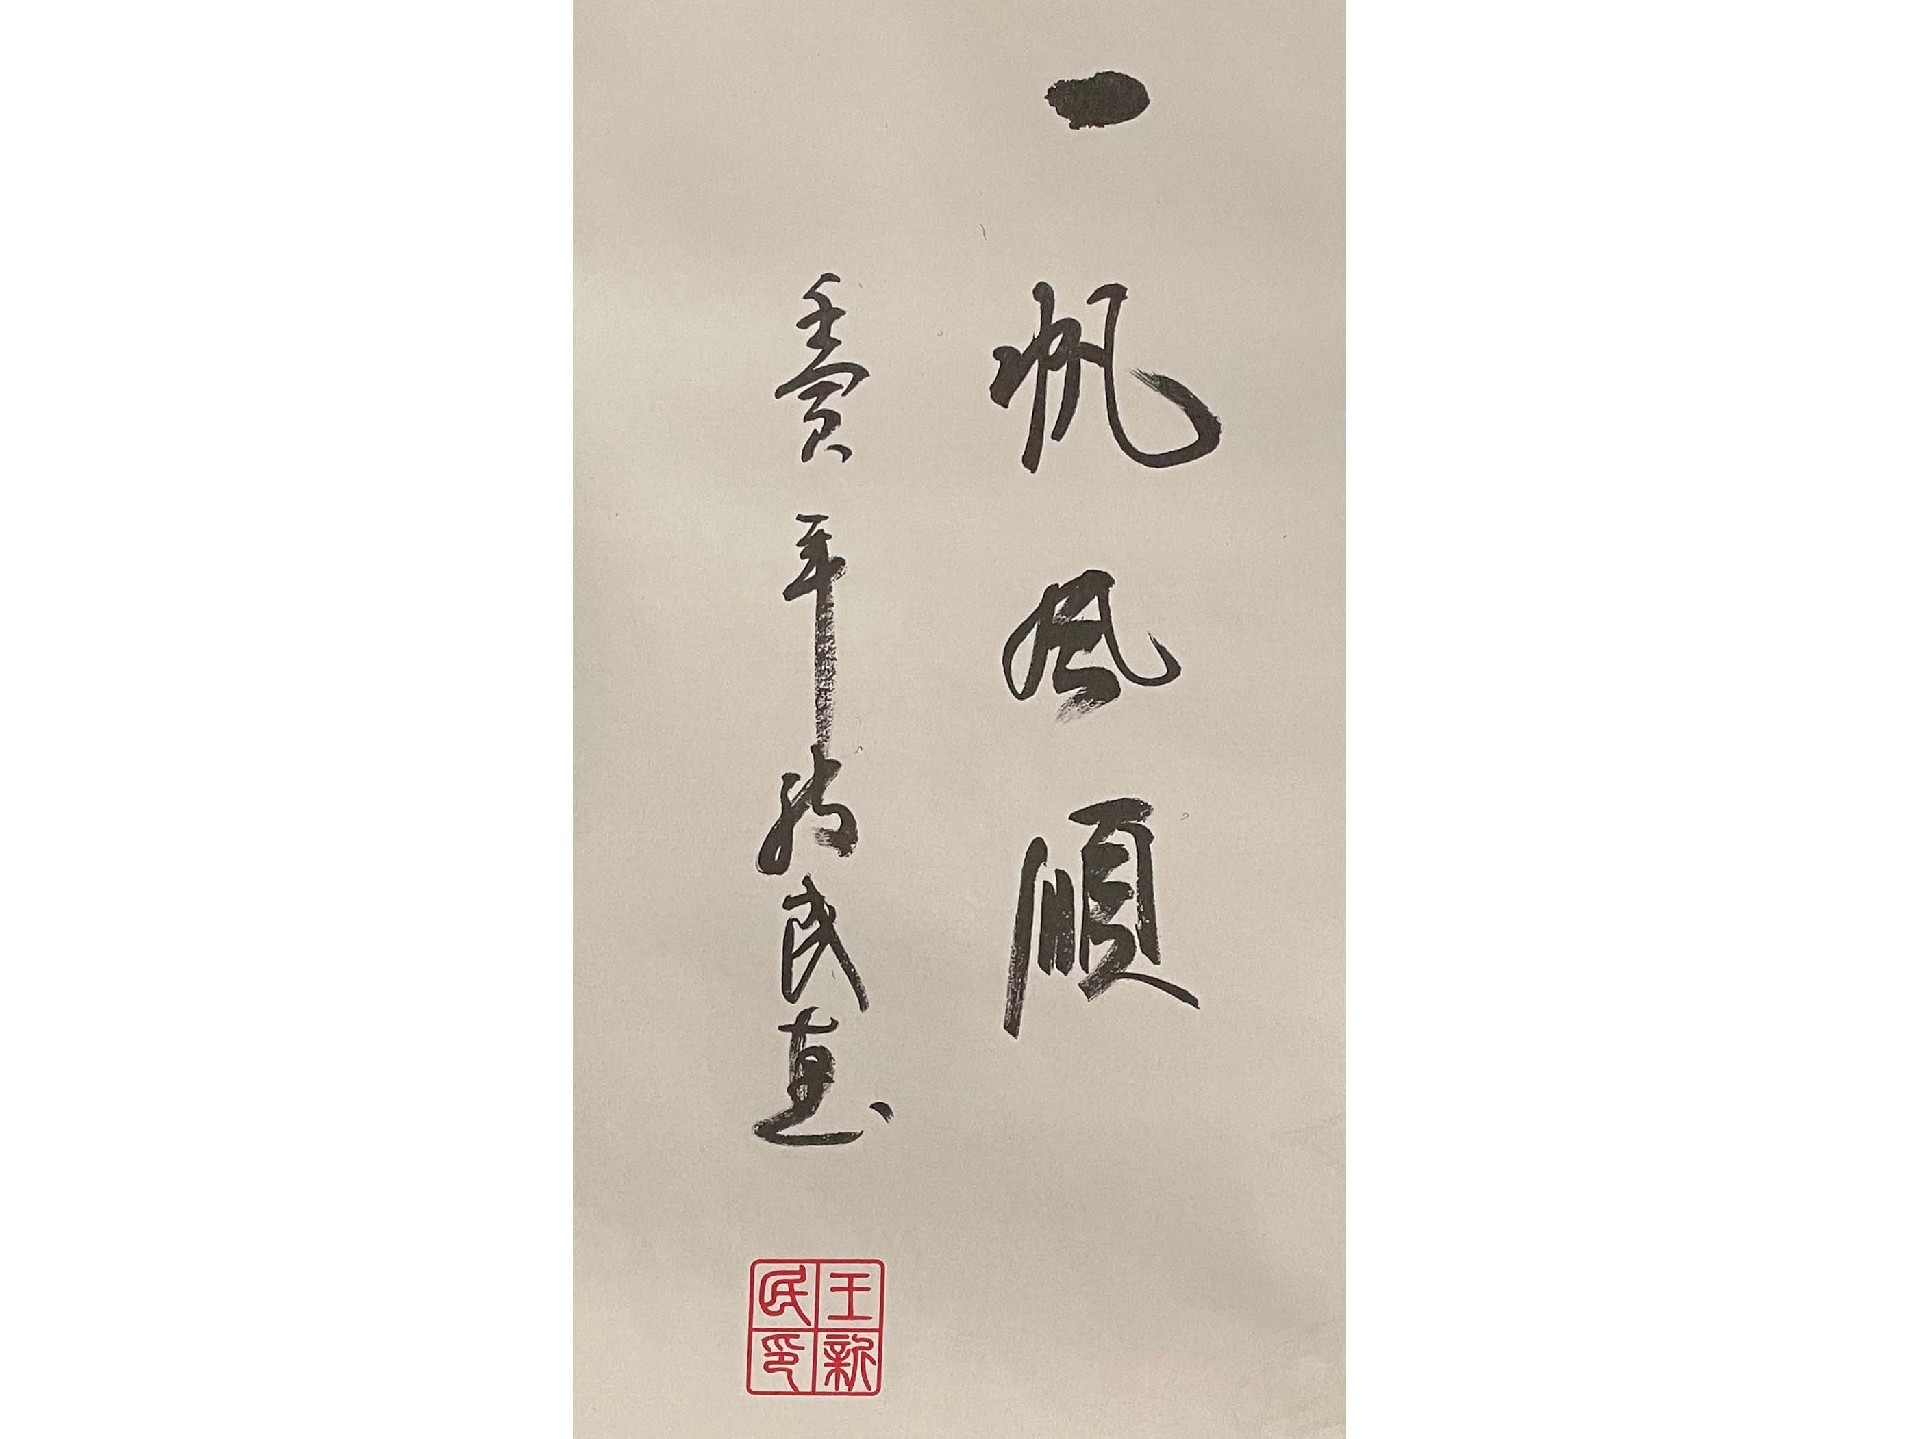 一帆風順
壬寅年新民書
王新民印